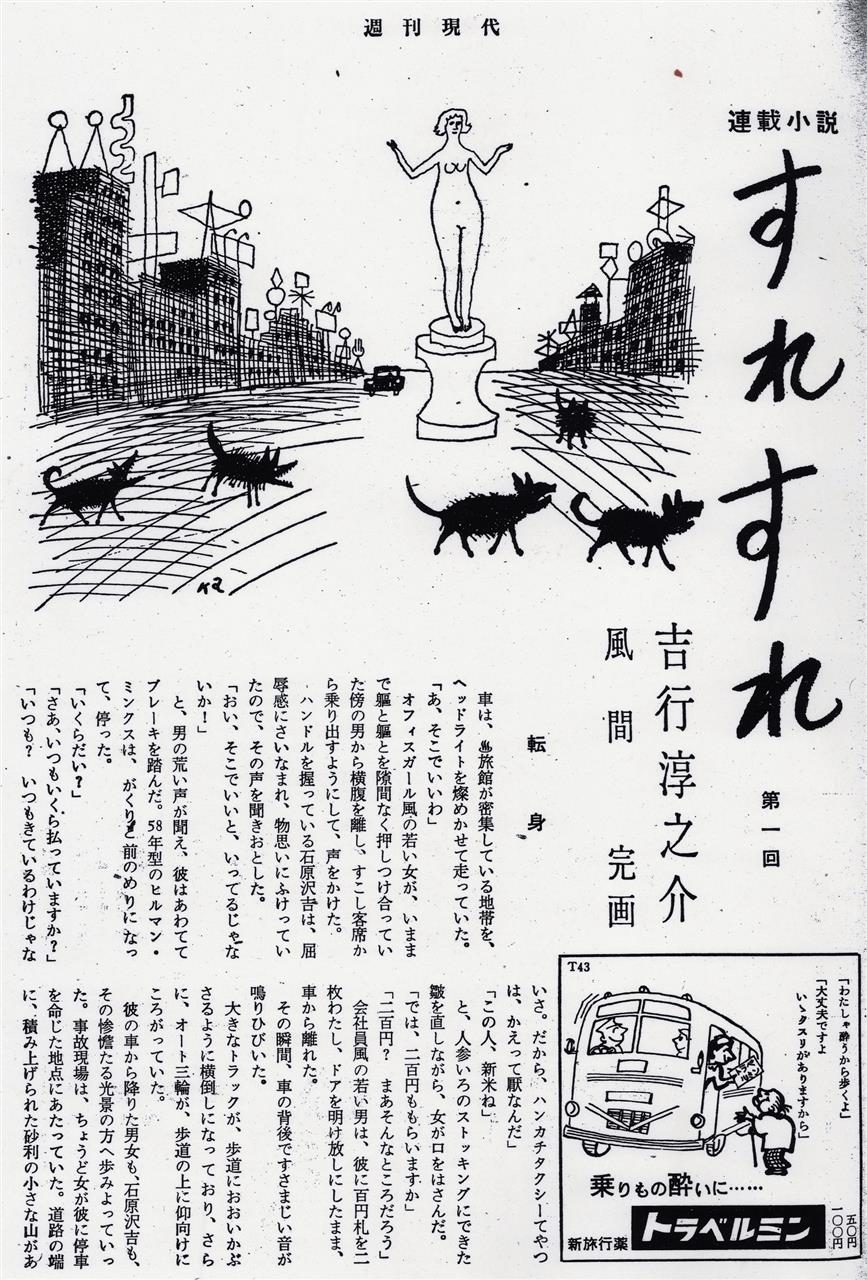 週刊現代
連載小説
すれすれ
第一回
吉行淳之介
風間完画
転身
車は、♨旅館が密集している地帯を、
ヘッドライトを燦めかせて走っていた。
「あ、そこでいいわ」
オフィスガール風の若い女が、いまま
で軀と軀とを隙間なく押しつけ合ってい
た傍の男から横腹を離し、すこし客席か
ら乗り出すようにして、声をかけた。
ハンドルを握っている石原沢吉は、屈
辱感にさいなまれ、物思いにふけってい
たので、その声を聞きおとした。
「おい、そこでいいと、いってるじゃな
いか!」
と、男の荒い声が聞え、彼はあわてて
ブレーキを踏んだ。58年型のヒルマン・
ミンクスは、がくりと前のめりになっ
て、停った。
「いくらだい?」
「さあ、いつもいくら払っていますか?」
「いつも? いつもきているわけじゃな
いさ。だから、ハンカチタクシーてやつ
は、かえって厭なんだ」
「この人、新米ね」
と、人参いろのストッキングにできた
皺を直しながら、女が口をはさんだ。
「では、二百円ももらいますか」
「二百円? まあそんなところだろう」
会社員風の若い男は、彼に百円札を二
枚わたし、ドアを明け放しにしたまま、
車から離れた。
その瞬間、車の背後ですさまじい音が
鳴りひびいた。
大きなトラックが、歩道におおいかぶ
さるように横倒しになっており、さら
に、オート三輪が、歩道の上に仰向けに
ころがっていた。
彼の車から降りた男女も、石原沢吉も、
その惨憺たる光景の方へ歩みよっていっ
た。事故現場は、ちょうど女が彼に停車
を命じた地点にあたっていた。道路の端
に、積み上げられた砂利の小さな山があ
T43
「わたしゃ酔うから歩くよ」
「大丈夫ですよ
いゝクスリがありますから」
乗りもの酔いに……
新旅行薬
トラベルミン
五〇円
一〇〇円